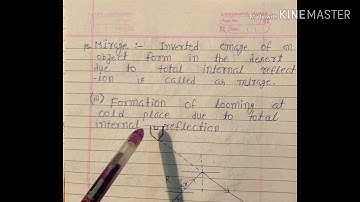 Made with KINEMASTER
Mirage :- Inverted image of an
object form in the desert
due to total internal reflect
-ion is called as mirage.
(iii) Formation of looming at
cold place due to total
internal reflection